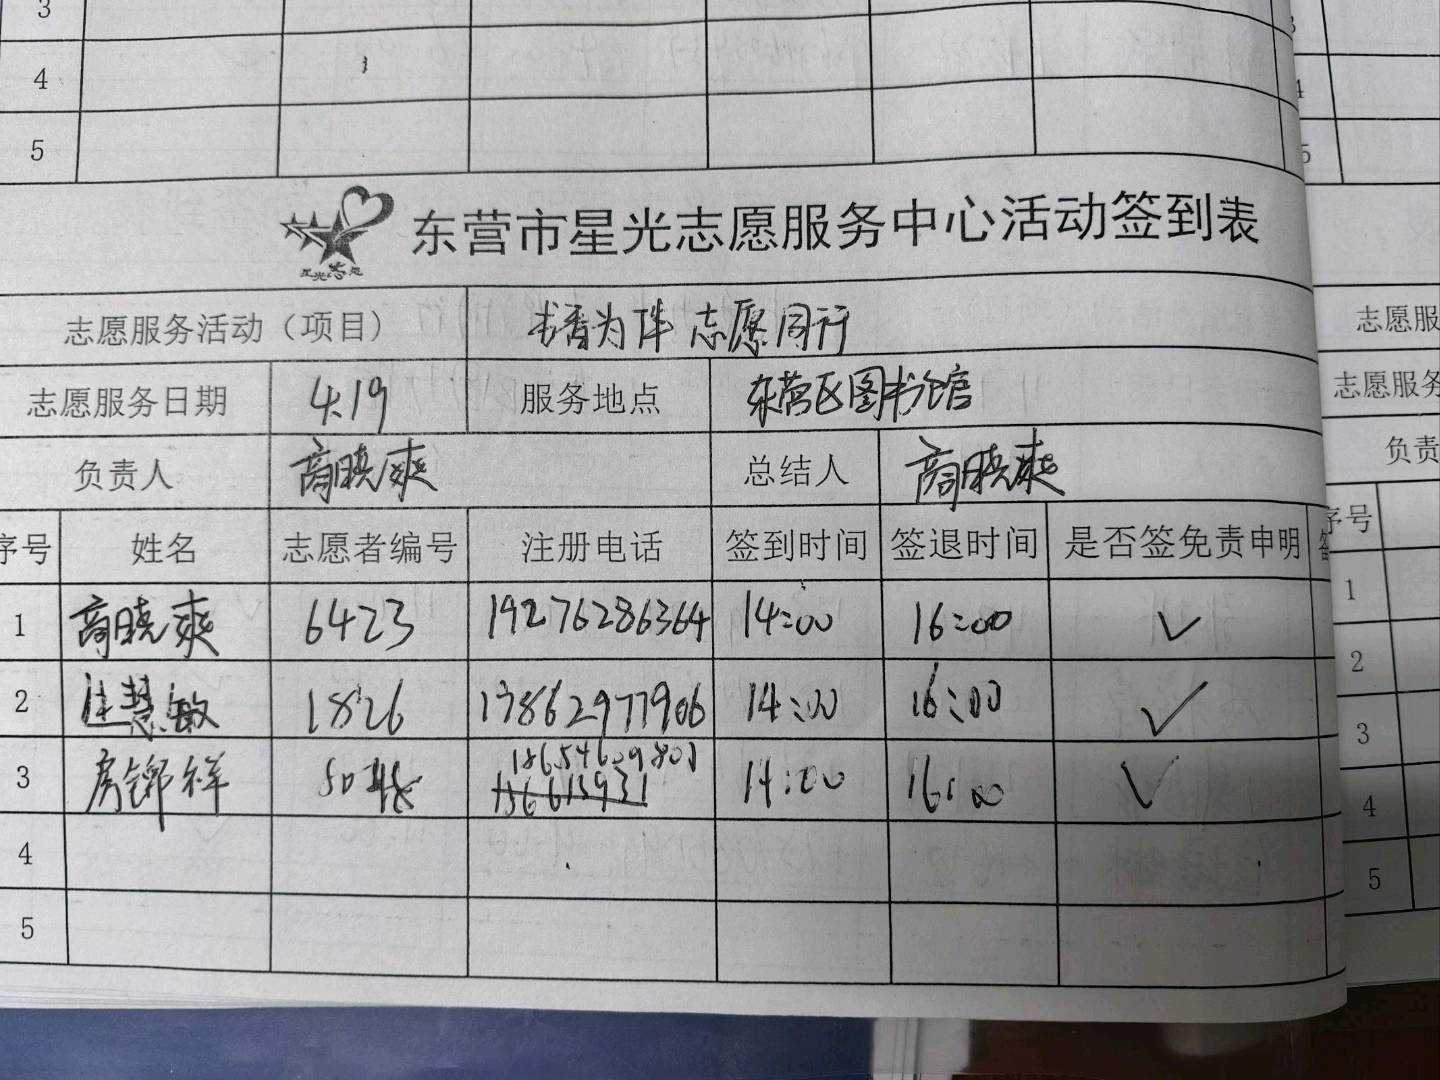 3
4
5
星光志愿
东营市星光志愿服务中心活动签到表
志愿服务活动（项目） 书香为伴 志愿同行
志愿服务日期 4.19 服务地点 东营区图书馆
负责人 商晓爽 总结人 商晓爽
序号 姓名 志愿者编号 注册电话 签到时间 签退时间 是否签免责申明
1 商晓爽 6423 19276286364 14:00 16:00 ✓
2 慧敏 1826 13862977906 14:00 16:00 ✓
3 房 祥 18654609801 14:00 16:00 ✓
4
5
4
5
志愿服
志愿服务
负责
序号
1
2
3
4
5